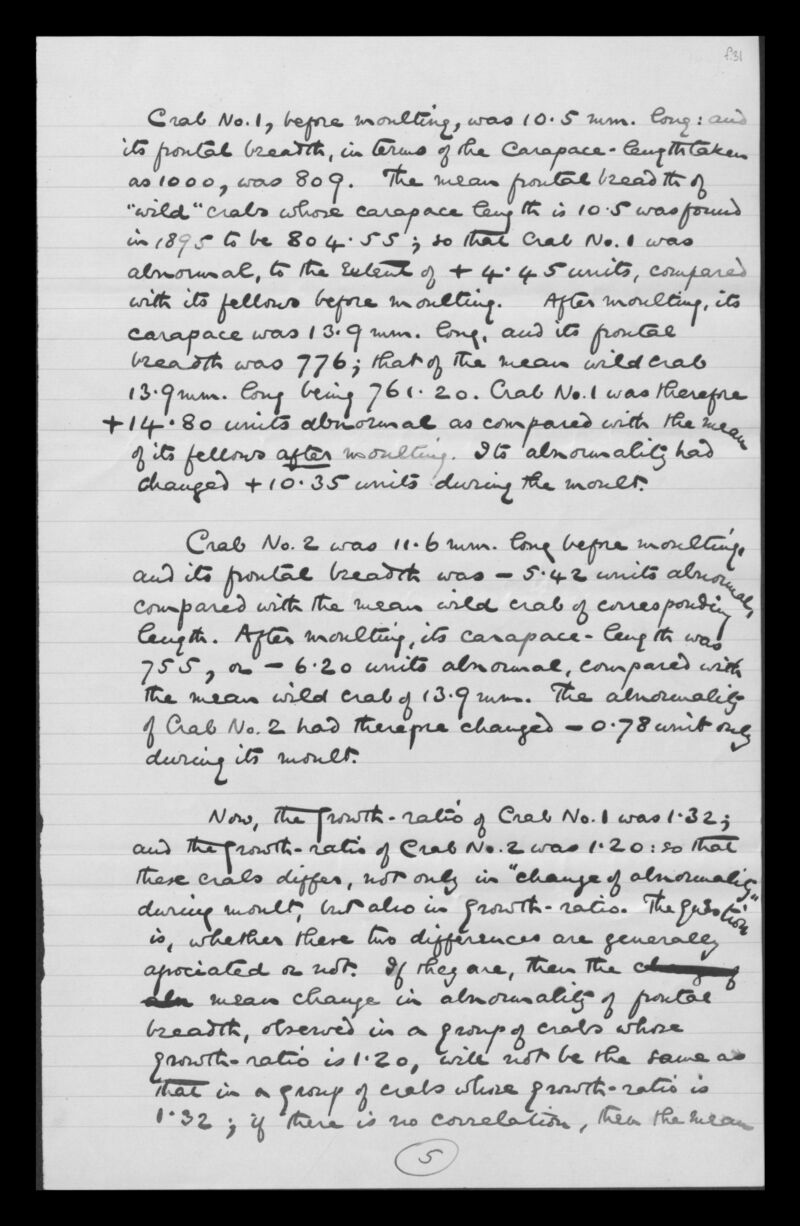 f.31
Crab No. 1, before moulting, was 10.5 mm. long: and
its frontal breadth, in terms of the Carapace-length taken
as 1000, was 809. The mean frontal breadth of
"wild" crabs whose carapace length is 10.5 was found
in 1895 to be 804.55; so that Crab No. 1 was
abnormal, to the Extent of + 4.45 units, compared
with its fellows before moulting. After moulting, its
carapace was 13.9 mm. long, and its frontal
breadth was 776; that of the mean wild crab
13.9 mm. long being 761.20. Crab No. 1 was therefore
+14.80 units abnormal as compared with the mean
of its fellows after moulting. Its abnormality had
changed +10.35 units during the moult.
Crab No. 2 was 11.6 mm. long before moulting,
and its frontal breadth was – 5.42 units abnormal,
compared with the mean wild crab of corresponding
length. After moulting, its carapace-length was
755, or – 6.20 units abnormal, compared with
the mean wild crab of 13.9 mm. The abnormality
of Crab No. 2 had therefore changed – 0.78 unit only
during its moult.
Now, the growth-ratio of Crab No. 1 was 1.32;
and the growth-ratio of Crab No. 2 was 1.20: so that
these crabs differ, not only in "change of abnormality"
during moult, but also in growth-ratio. The question
is, whether these two differences are generally
associated or not. If they are, then the change of
abn mean change in abnormality of frontal
breadth, observed in a group of crabs whose
growth-ratio is 1.20, will not be the same as
that in a group of crabs whose growth-ratio is
1.32; if there is no correlation, then the mean
5